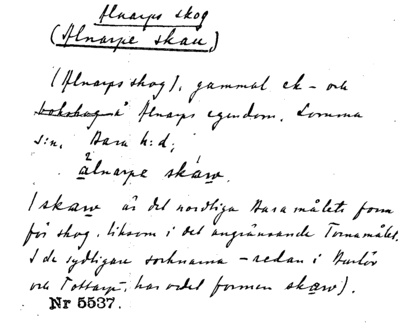 Alnarps skog
(Alnarpe skau,)
(Alnarps skog), gammal ek- och
bokskog å Alnarps egendom, Lomma
s:n, Bara h:d;
älnarpe skaw.
(skaw är det nordliga Baramålets form
för skog, liksom i det angränsande Tornamålet.
I de sydligare socknarna - redan i Burlöv
och Tottarp, har ordet formen skaw).
Nr 5537.